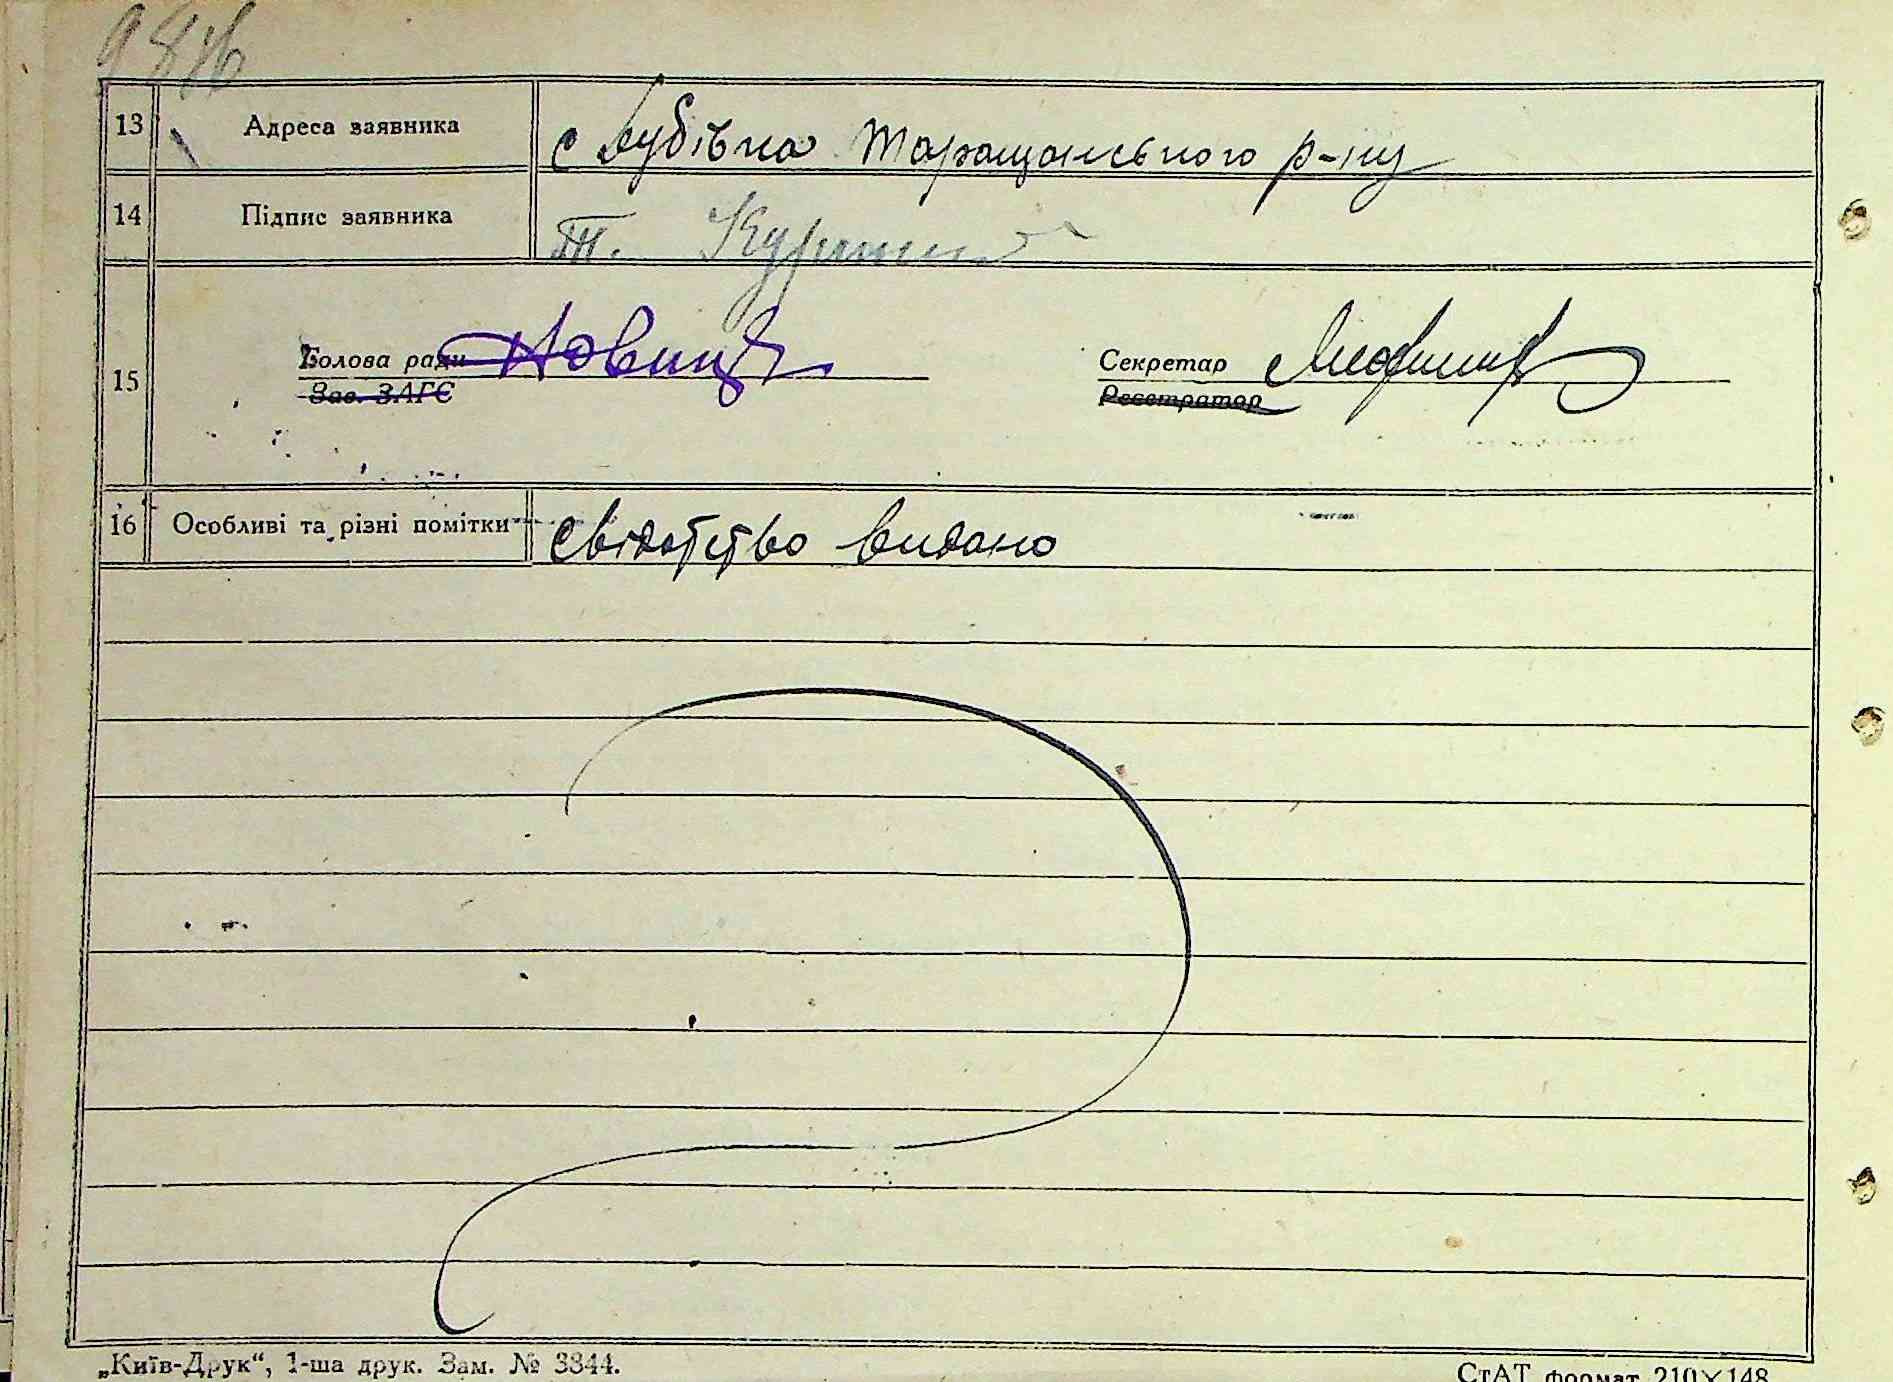 13 Адреса заявника с Дубівка Таращанського р-ну
14 Підпис заявника Т.
15 Голова ради Секретар
Зав. ЗАГС Реєстратор
16 Особливі та різні помітки свідотство видано
„Київ-Друк“, 1-ша друк. Зам. № 3344. СтАТ формат 210×148